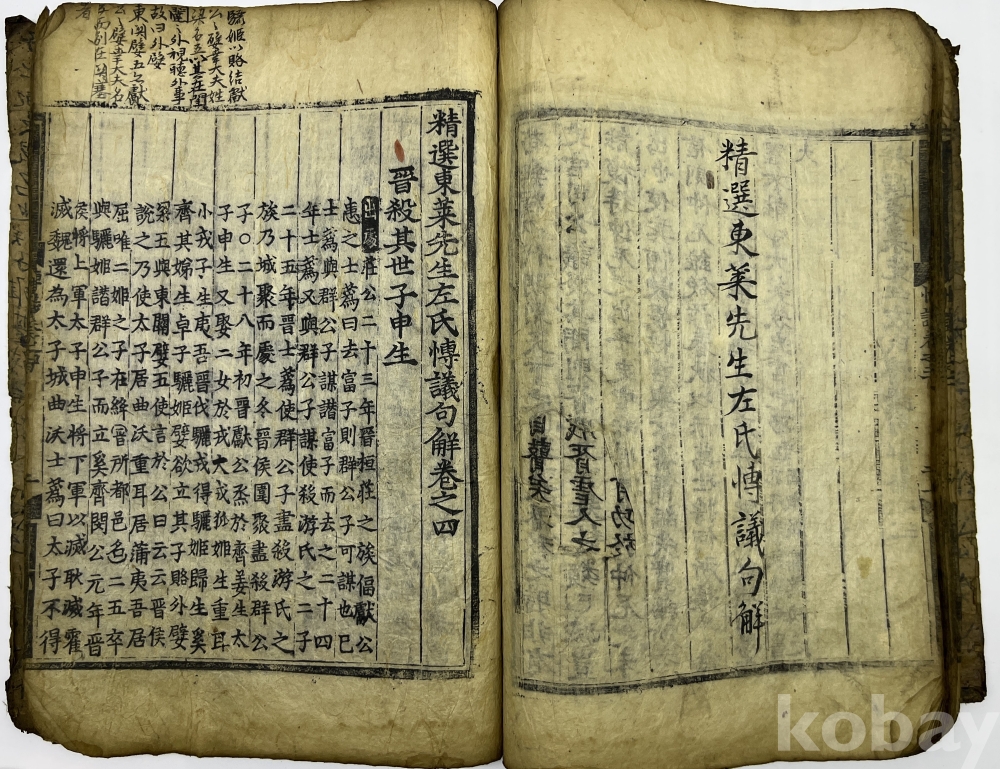 精選東莱先生左氏愽議句解
驪姬以賂結獻
公〻嬖幸大夫姓
梁名五以其在閨
闥之外視聽外事
故曰外嬖
東関嬖五亦獻
公〻嬖幸大夫名
五而別在関塞
者
精選東莱先生左氏愽議句解卷之四
晋殺其世子申生
出處 莊公二十三年晋桓莊之族偪獻公
患之士蔿曰去富子則群公子可謀也已
士蔿與群公子謀譖富子而去之二十四
年士蔿又與群公子謀使殺游氏之二子
二十五年晋士蔿使群公子盡殺游氏之
族乃城聚而處之冬晋侯圍聚盡殺群公
子〇二十八年初晋獻公烝於齊姜生太
子申生又娶二女於戎大戎狐姬生重耳
小戎子生夷吾晋伐驪戎得驪姬歸生奚
齊其娣生卓子驪姬嬖欲立其子賂外嬖
梁五與東關嬖五使言於公曰云云晋侯
說之乃使太子居曲沃重耳居蒲夷吾居
屈唯二姬之子在絳所都邑名二五卒
與驪姬譖群公子而立奚齊閔公元年晋
侯將上軍太子申生将下軍以滅耿滅霍
滅魏還為太子城曲沃士蔿曰太子不得
kobay